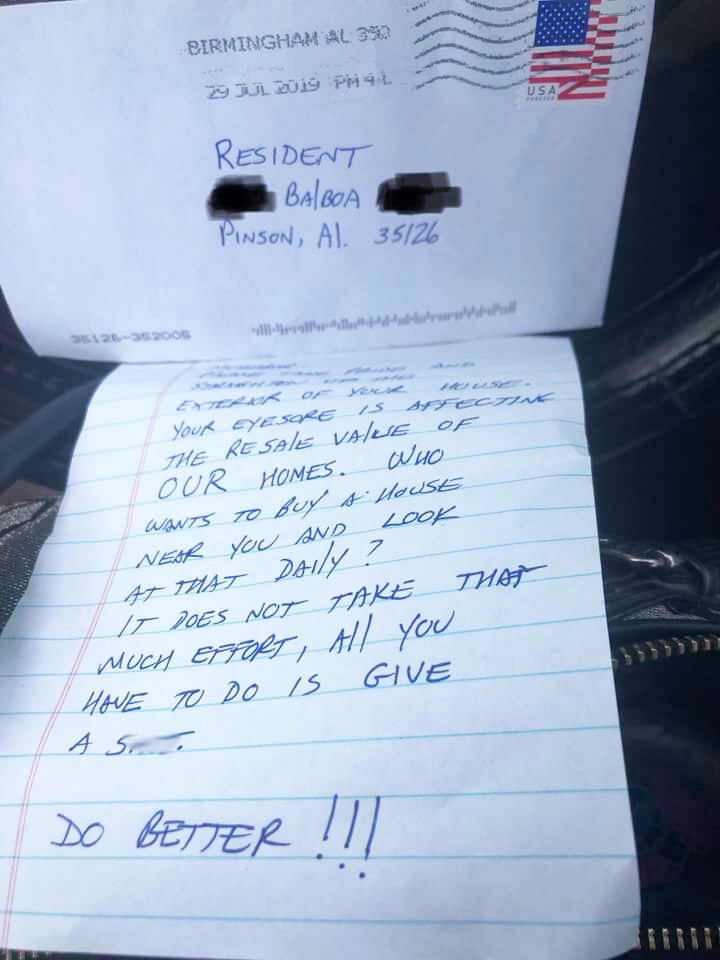 BIRMINGHAM AL 350
29 JUL 2019 PM 4 L
USA
FOREVER
RESIDENT
BAlBOA
PINSON, Al. 35126
35126-352006
PLEASE TAKE PRIDE AND
STRAIGHTEN UP THE
EXTERIOR OF YOUR HOUSE.
YOUR EYESORE IS AFFECTING
THE RESAlE VAlUE OF
OUR HOMES. WHO
WANTS TO BUY A HOUSE
NEAR YOU AND LOOK
AT THAT DAIlY?
IT DOES NOT TAKE THAT
MUCH EFFORT, All YOU
HAVE TO DO IS GIVE
A S
DO BETTER!!!